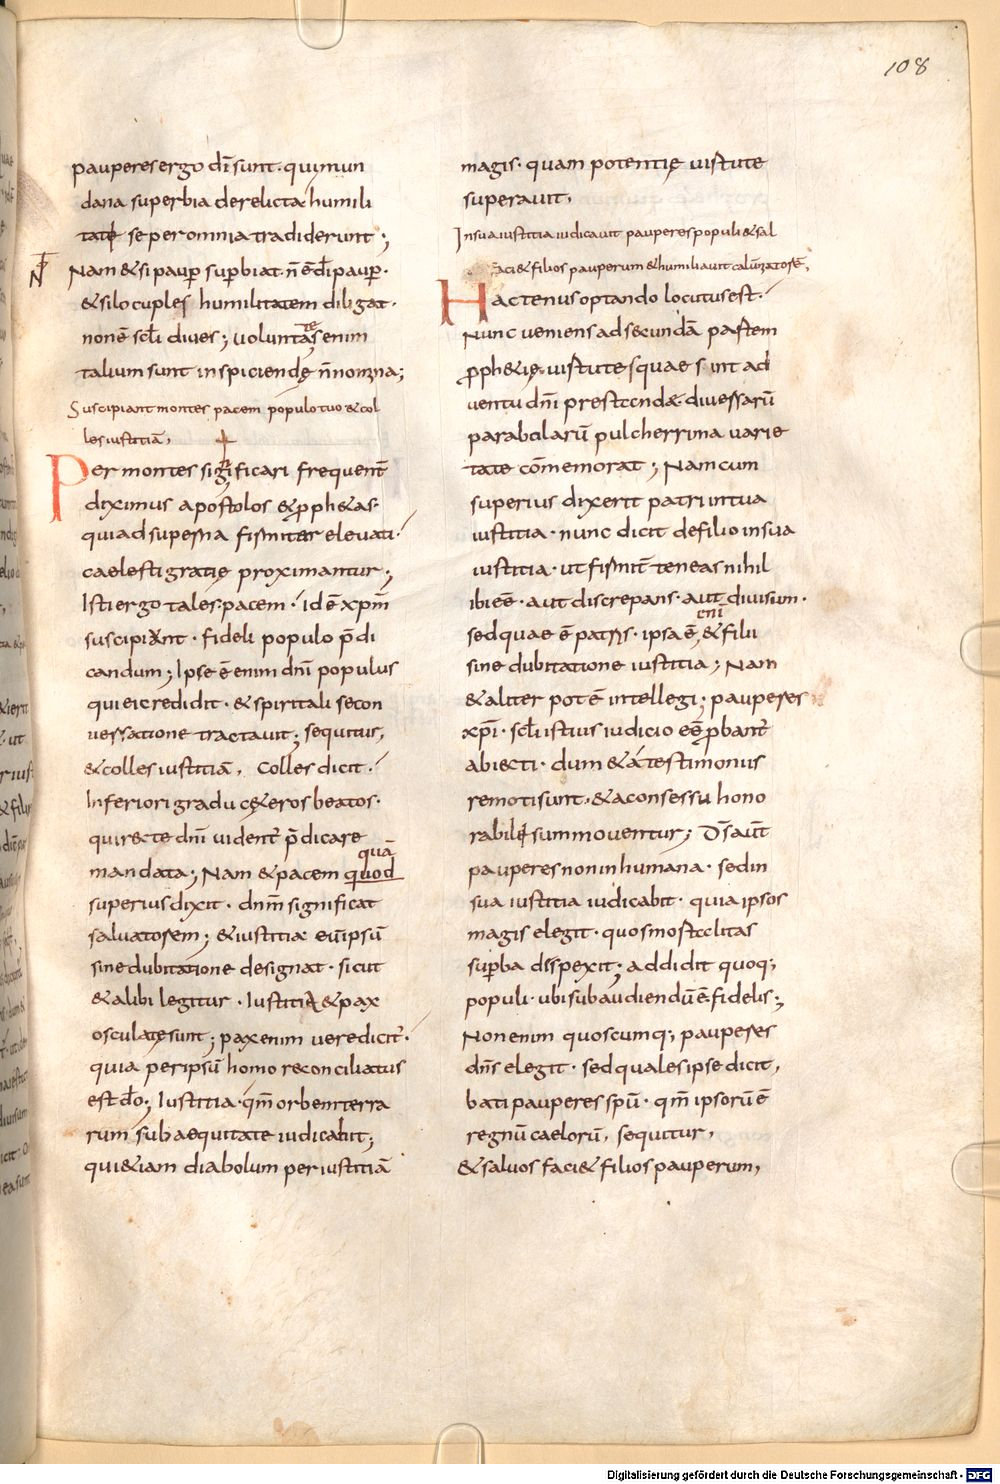 108
pauperes ergo dī sunt · qui mun
dana superbia derelicta humili
tati se per omnia tradiderunt ;
Nam & si paup̄ sup̄biat · n̄ ē dī paup̄ ·
& si locuples humilitatem diligat ·
non ē scł̄i dives ; voluntates enim
talium sunt inspiciendę n̄ nomina ;
Suscipiant montes pacem populo tuo & col
les iustitiā ,
Per montes significari frequent̄
diximus apostolos & p̱ph&as ·
qui ad superna firmiter elevati ·
caelesti gratię proximantur ;
Isti ergo tales · pacem · id ē xp̄m
suscipiant · fideli populo p̄di
candum ; Ipse ē enim dn̄i populus
qui ei credidit · & spiritali se con
versatione tractavit ; sequitur ,
& colles iustitiā , Colles dicit ·
Inferiori gradu cęteros beatos ·
qui recte dn̄i vident̄ p̄dicare
mandata ; Nam & pacem quod quā
superius dixit · dnm̄ significat
salvatorem ; & iustitia eūipsū
sine dubitatione designat · sicut
& alibi legitur · Iustitia & pax
osculatę sunt ; pax enim vere dicit̄ ·
quia per ipsū homo reconciliatus
est dō ; Iustitia · qm̄ orbem terra
rum sub aequitate iudicabit ;
qui &iam diabolum per iustitiā
magis · quam potentię virtute
superavit ,
In sua iustitia iudicavit pauperes populi & sal
faci& filios pauperum & humiliavit calūniatorē ,
Hactenus optando locutus est ·
Nunc veniens ad secundā partem
p̱ph&ię virtutes quae sunt ad
ventu dn̄i prestandę · diversarū
parabolarū pulcherrima varie
tate cōmemorat ; Nam cum
superius dixerit patri in tua
iustitia · nunc dicit de filio in sua
iustitia · ut firmit̄ teneas nihil
ibi eē · aut discrepans · aut division ·
sed quae ē patris · ipsa ē, cn̄i & filii
sine dubitatione iustitia ; Nam
& aliter pot ē intellegi ; pauperes
xp̄i · scł̄i istius iudicio eē p̱bant̄
abiecti · dum & a testimoniis
remoti sunt · & a consessu hono
rabili summoventur ; Dn̄s aūt
pauperes non inhumana · sed in
sua iustitia iudicabit · quia ipsos
magis elegit · quos mortalitas
sup̄ba dispexit ; addidit quoq;
populi · ubi subaudiendū ē fidelis ;
Non enim quoscumq; pauperes
dn̄s elegit · sed quales ipse dicit ,
bati pauperes spū · qm̄ ipsorū ē
regnū caelorū , sequitur ,
& salvos faci& filios pauperum ,
Digitalisierung gefördert durch die Deutsche Forschungsgemeinschaft - DFG